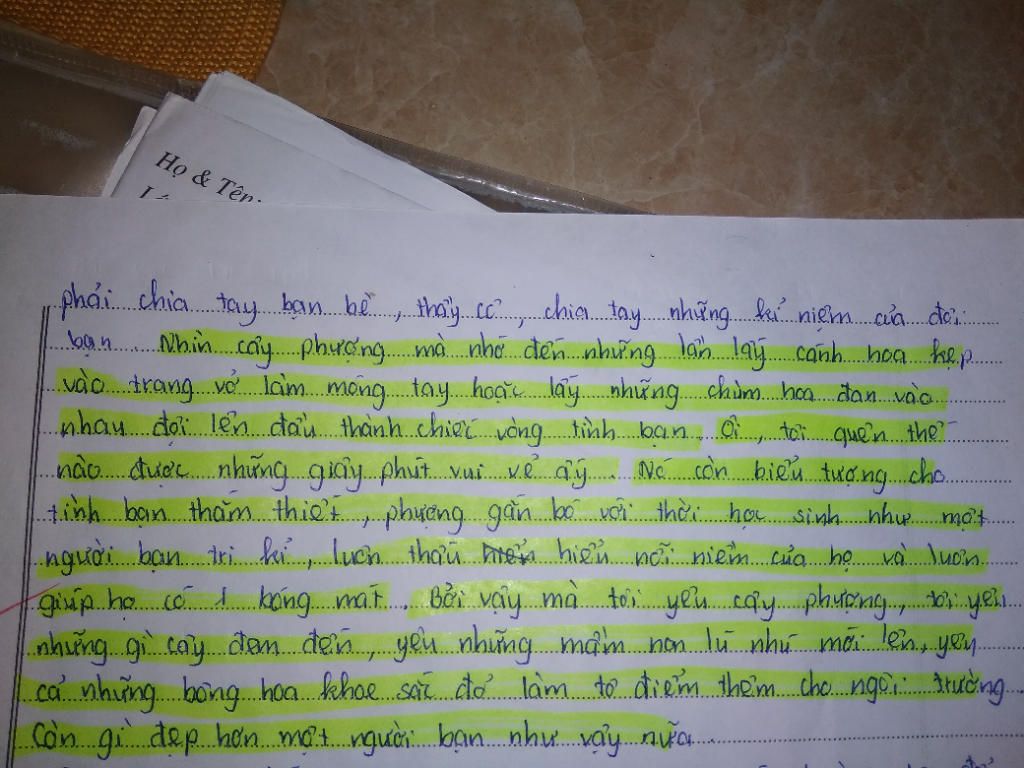 Họ & Tên:
phải chia tay bạn bè, thầy cô, chia tay những kỉ niệm của đời
bạn. Nhìn cây phượng mà nhớ đến những lần lấy cánh hoa kẹp
vào trang vở làm móng tay hoặc lấy những chùm hoa đan vào
nhau đội lên đầu thành chiếc vòng tình bạn. Ôi, tôi quên thế
nào được những giây phút vui vẻ ấy. Nó còn biểu tượng cho
tình bạn thắm thiết, phượng gắn bó với thời học sinh như một
người bạn tri kỉ, luôn thấu hiểu nỗi niềm của họ và luôn
giúp họ có 1 bóng mát. Bởi vậy mà tôi yêu cây phượng, tôi yêu
những gì cây đem đến, yêu những mầm non lú nhú mới lên, yêu
cả những bông hoa khoe sắc đỏ làm tô điểm thêm cho ngôi trường.
Còn gì đẹp hơn một người bạn như vậy nữa.